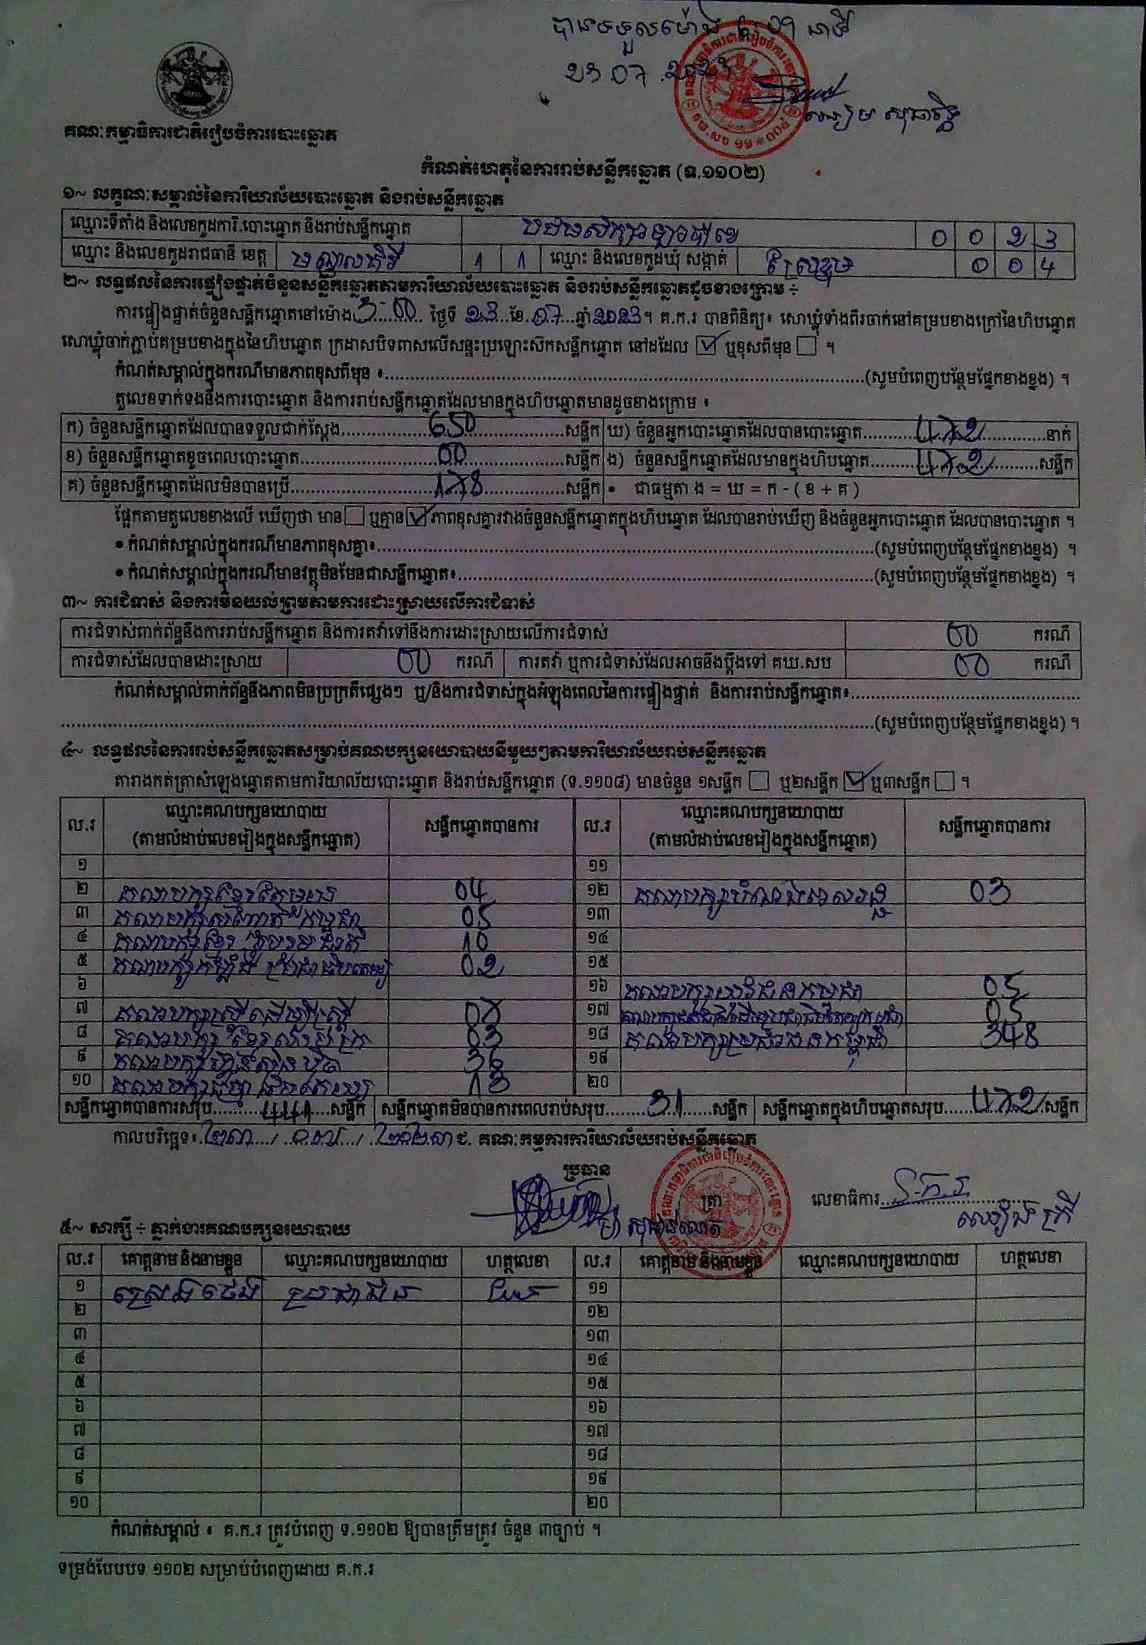 បានទទួលម៉ោង
23 07 2023
គណៈកម្មាធិការជាតិរៀបចំការបោះឆ្នោត
កំណត់ហេតុនៃការរាប់សន្លឹកឆ្នោត (ទ.១១០២)
១~ លក្ខណៈសម្គាល់នៃការិយាល័យបោះឆ្នោត និងរាប់សន្លឹកឆ្នោត
ឈ្មោះទីតាំង និងលេខកូដការិ.បោះឆ្នោត និងរាប់សន្លឹកឆ្នោត 0 0 2 3
ឈ្មោះ និងលេខកូដរាជធានី ខេត្ត មណ្ឌលគិរី 1 1 ឈ្មោះ និងលេខកូដឃុំ សង្កាត់ 0 0 4
២~ លទ្ធផលនៃការផ្ទៀងផ្ទាត់ចំនួនសន្លឹកឆ្នោតតាមការិយាល័យបោះឆ្នោត និងរាប់សន្លឹកឆ្នោតដូចខាងក្រោម ៖
ការផ្ទៀងផ្ទាត់ចំនួនសន្លឹកឆ្នោតនៅម៉ោង 3-00 ថ្ងៃទី 23 ខែ 07 ឆ្នាំ 2023 ។ គ.ក.រ បានពិនិត្យ៖ សោឃ្លុំទាំងពីរចាក់នៅគម្របខាងក្រៅនៃហិបឆ្នោត
សោឃ្លុំចាក់ភ្ជាប់គម្របខាងក្នុងនៃហិបឆ្នោត ក្រដាសបិទពាសលើសន្ទះប្រឡោះស៊កសន្លឹកឆ្នោត នៅដដែល ☑ ឬខុសពីមុន ☐ ។
កំណត់សម្គាល់ក្នុងករណីមានភាពខុសពីមុន ៖ (សូមបំពេញបន្ថែមផ្នែកខាងខ្នង) ។
តួលេខទាក់ទងនឹងការបោះឆ្នោត និងការរាប់សន្លឹកឆ្នោតដែលមានក្នុងហិបឆ្នោតមានដូចខាងក្រោម ៖
ក) ចំនួនសន្លឹកឆ្នោតដែលបានទទួលជាក់ស្តែង 650 សន្លឹក ឃ) ចំនួនអ្នកបោះឆ្នោតដែលបានបោះឆ្នោត 472 នាក់
ខ) ចំនួនសន្លឹកឆ្នោតខូចពេលបោះឆ្នោត 00 សន្លឹក ង) ចំនួនសន្លឹកឆ្នោតដែលមានក្នុងហិបឆ្នោត 472 សន្លឹក
គ) ចំនួនសន្លឹកឆ្នោតដែលមិនបានប្រើ 178 សន្លឹក • ជាធម្មតា ង = ឃ = ក - ( ខ + គ )
ផ្អែកតាមតួលេខខាងលើ ឃើញថា មាន ☐ ឬគ្មាន ☑ ភាពខុសគ្នារវាងចំនួនសន្លឹកឆ្នោតក្នុងហិបឆ្នោត ដែលបានរាប់ឃើញ និងចំនួនអ្នកបោះឆ្នោត ដែលបានបោះឆ្នោត ។
• កំណត់សម្គាល់ក្នុងករណីមានភាពខុសគ្នា៖ (សូមបំពេញបន្ថែមផ្នែកខាងខ្នង) ។
• កំណត់សម្គាល់ក្នុងករណីមានវត្ថុមិនមែនជាសន្លឹកឆ្នោត៖ (សូមបំពេញបន្ថែមផ្នែកខាងខ្នង) ។
៣~ ការជំទាស់ និងការមិនយល់ព្រមតាមការដោះស្រាយលើការជំទាស់
ការជំទាស់ពាក់ព័ន្ធនឹងការរាប់សន្លឹកឆ្នោត និងការតវ៉ាទៅនឹងការដោះស្រាយលើការជំទាស់ 00 ករណី
ការជំទាស់ដែលបានដោះស្រាយ 00 ករណី ការតវ៉ា ឬការជំទាស់ដែលអាចនឹងប្តឹងទៅ គឃ.សប 00 ករណី
កំណត់សម្គាល់ពាក់ព័ន្ធនឹងភាពមិនប្រក្រតីផ្សេងៗ ឬ/និងការជំទាស់ក្នុងអំឡុងពេលនៃការផ្ទៀងផ្ទាត់ និងការរាប់សន្លឹកឆ្នោត៖
(សូមបំពេញបន្ថែមផ្នែកខាងខ្នង) ។
៤~ លទ្ធផលនៃការរាប់សន្លឹកឆ្នោតសម្រាប់គណបក្សនយោបាយនីមួយៗតាមការិយាល័យរាប់សន្លឹកឆ្នោត
តារាងកត់ត្រាសំឡេងឆ្នោតតាមការិយាល័យបោះឆ្នោត និងរាប់សន្លឹកឆ្នោត (ទ.១១០៨) មានចំនួន ១សន្លឹក ☐ ឬ២សន្លឹក ☑ ឬ៣សន្លឹក ☐ ។
ល.រ ឈ្មោះគណបក្សនយោបាយ (តាមលំដាប់លេខរៀងក្នុងសន្លឹកឆ្នោត) សន្លឹកឆ្នោតបានការ ល.រ ឈ្មោះគណបក្សនយោបាយ (តាមលំដាប់លេខរៀងក្នុងសន្លឹកឆ្នោត) សន្លឹកឆ្នោតបានការ
១ ១១
២ គណបក្សខ្មែរតែមួយ 04 ១២ គណបក្ស 03
៣ គណបក្ស កម្ពុជា 05 ១៣
៤ គណបក្សខ្មែរ 10 ១៤
៥ គណបក្សកម្លាំងប្រជាធិបតេយ្យ 02 ១៥
៦ ១៦ គណបក្សយុវជនកម្ពុជា 05
៧ គណបក្សស្ត្រីដើម្បីស្ត្រី 07 ១៧ 05
៨ គណបក្សខ្មែរ 03 ១៨ គណបក្សប្រជាជនកម្ពុជា 348
៩ គណបក្សហ៊្វុនស៊ិនប៉ិច 36 ១៩
១០ គណបក្ស 13 ២០
សន្លឹកឆ្នោតបានការសរុប 441 សន្លឹក សន្លឹកឆ្នោតមិនបានការពេលរាប់សរុប 31 សន្លឹក សន្លឹកឆ្នោតក្នុងហិបឆ្នោតសរុប 472 សន្លឹក
កាលបរិច្ឆេទ៖ ២៣ / ០៧ / ២០២៣ ជ. គណៈកម្មការការិយាល័យរាប់សន្លឹកឆ្នោត
ប្រធាន
ត្រា លេខាធិការ
៥~ សាក្សី ÷ ភ្នាក់ងារគណបក្សនយោបាយ
ល.រ គោត្តនាម និងនាមខ្លួន ឈ្មោះគណបក្សនយោបាយ ហត្ថលេខា ល.រ គោត្តនាម និងនាមខ្លួន ឈ្មោះគណបក្សនយោបាយ ហត្ថលេខា
១ ប្រជាជន ១១
២ ១២
៣ ១៣
៤ ១៤
៥ ១៥
៦ ១៦
៧ ១៧
៨ ១៨
៩ ១៩
១០ ២០
កំណត់សម្គាល់ ៖ គ.ក.រ ត្រូវបំពេញ ទ.១១០២ ឱ្យបានត្រឹមត្រូវ ចំនួន ៣ច្បាប់ ។
ទម្រង់បែបបទ ១១០២ សម្រាប់បំពេញដោយ គ.ក.រ